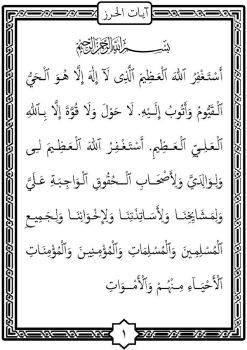 آيات الحرز
بِسْمِ اللهِ الرَّحْمٰنِ الرَّحِيْمِ
أَسْتَغْفِرُ اللهَ الْعَظِيْمَ الَّذِى لَآ إِلٰهَ إِلَّا هُوَ الْحَيُّ
الْقَيُّوْمُ وَأَتُوْبُ إِلَيْهِ. لَا حَوْلَ وَلَا قُوَّةَ إِلَّا بِاللهِ
الْعَلِيِّ الْعَظِيْمِ. أَسْتَغْفِرُ اللهَ الْعَظِيْمَ لِى
وَلِوَالِدَيَّ وَلِأَصْحَابِ الْحُقُوْقِ الْوَاجِبَةِ عَلَيَّ
وَلِمَشَايِخِنَا وَلِأَسَاتِذَتِنَا وَلِإِخْوَانِنَا وَلِجَمِيْعِ
الْمُسْلِمِيْنَ وَالْمُسْلِمَاتِ وَالْمُؤْمِنِيْنَ وَالْمُؤْمِنَاتِ
الْأَحْيَآءِ مِنْهُمْ وَالْأَمْوَاتِ
١